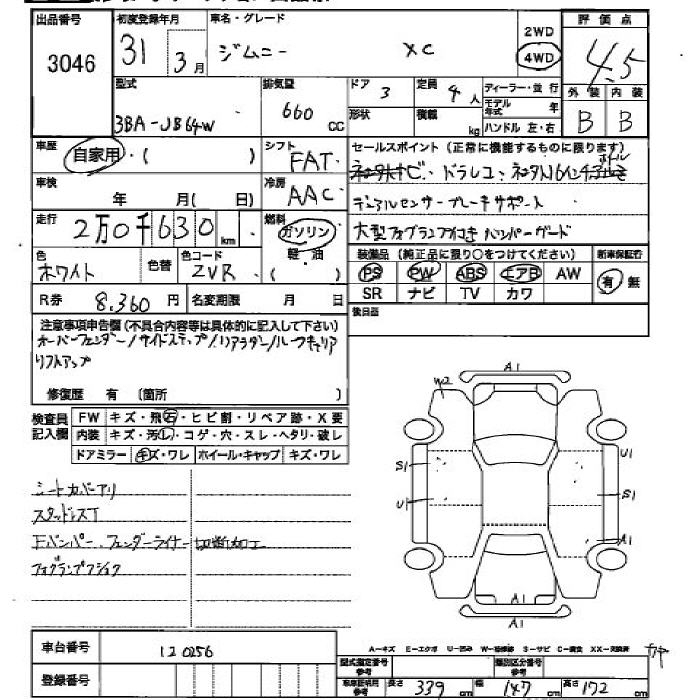 出品番号 初度登録年月 車名・グレード 評価点
3046 31 3月 ジムニー XC 2WD 4WD 4.5
型式 排気量 ドア 3 定員 4人 ディーラー・並行 外装 内装
3BA-JB64W 660 CC 形状 積載 kg モデル年式 年 ハンドル 左・右 B B
車歴 自家用・( ) シフト FAT セールスポイント(正常に機能するものに限ります)
車検 年 月(日) 冷房 AAC
ドラレコ
デュアルセンサーブレーキサポート
走行 2万0千630km 燃料 ガソリン 軽・油 ( )
大型フォグランプ付き バンパーガード
色 ホワイト 色替 色コード ZVR
装備品(純正品に限り○をつけてください) 新車保証書
PS PW ABS エアB AW 有 無
SR ナビ TV カワ
R券 8,360円 名変期限 月 日
後日品
注意事項申告欄(不具合内容等は具体的に記入して下さい)
オーバーフェンダー/サイドステップ/リアラダー/ルーフキャリア
リフトアップ
修復歴 有 (箇所 )
検査員記入欄 FW キズ・飛石・ヒビ割・リペア跡・X要
内装 キズ・汚レ・コゲ・穴・スレ・ヘタリ・破レ
ドアミラー キズ・ワレ ホイール・キャップ キズ・ワレ
シートカバーアリ
スタッドレスT
Fバンパー、フェンダーライナー切断加工
フォグランプ
A1
W2
S1 U1
U1 S1
A1
A1
A1
車台番号 120256
登録番号
A-キズ E-エクボ U-凹み W-補修跡 S-サビ C-腐食 XX-交換済
型式指定番号 参考 類別区分番号 参考
車庫証明用 参考 長さ 339cm 幅 147cm 高さ 172cm